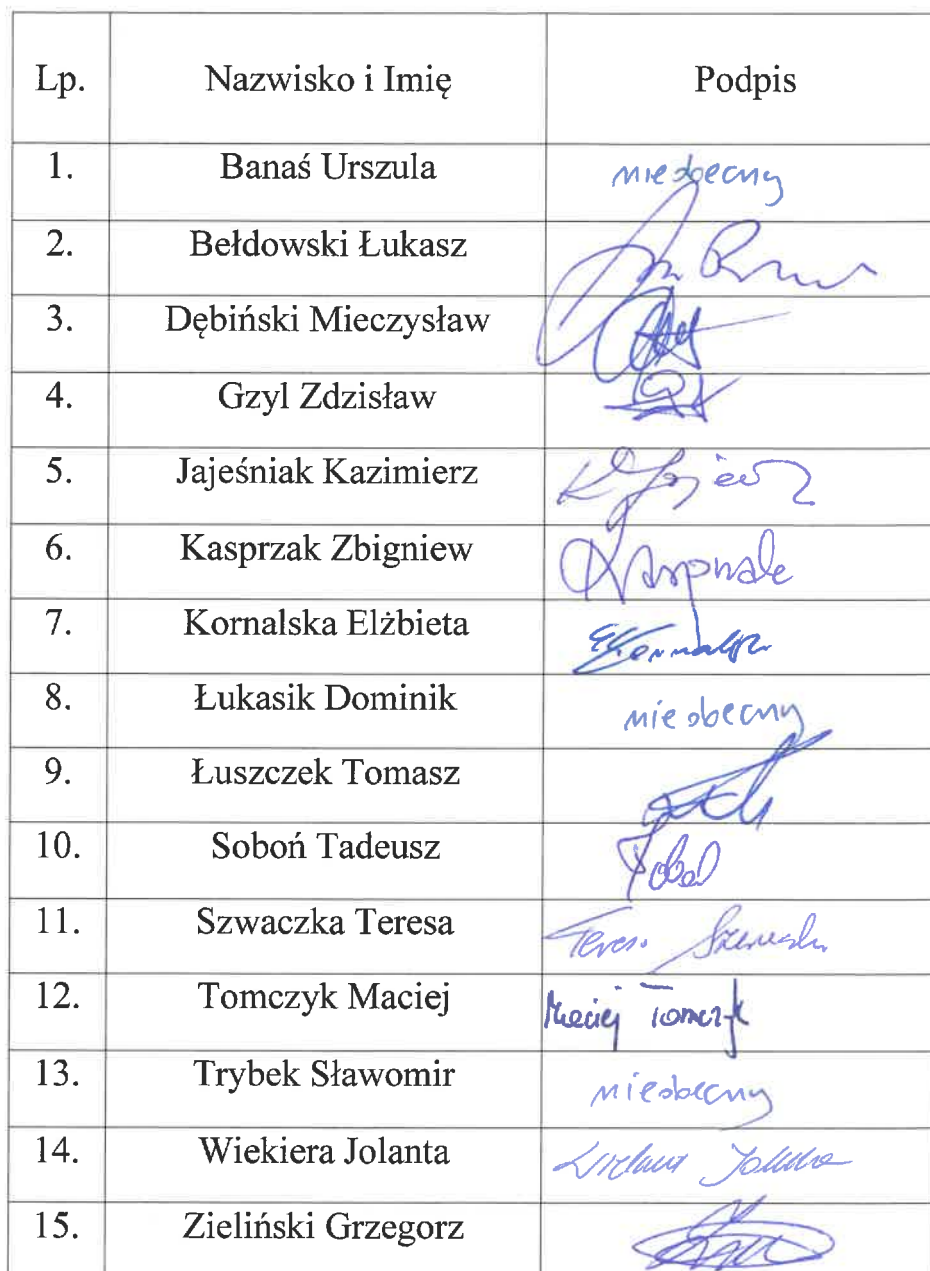 Lp. Nazwisko i Imię Podpis
1. Banaś Urszula nieobecny
2. Bełdowski Łukasz
3. Dębiński Mieczysław
4. Gzyl Zdzisław
5. Jajeśniak Kazimierz
6. Kasprzak Zbigniew
7. Kornalska Elżbieta
8. Łukasik Dominik nieobecny
9. Łuszczek Tomasz
10. Soboń Tadeusz
11. Szwaczka Teresa
12. Tomczyk Maciej Maciej Tomczyk
13. Trybek Sławomir nieobecny
14. Wiekiera Jolanta
15. Zieliński Grzegorz